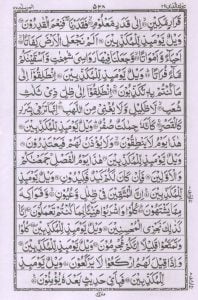 ٥٢٨
قَرَارٍ مَّكِيْنٍ اِلٰى قَدَرٍ مَّعْلُوْمٍ فَقَدَرْنَا فَنِعْمَ الْقٰدِرُوْنَ
وَيْلٌ يَّوْمَئِذٍ لِّلْمُكَذِّبِيْنَ اَلَمْ نَجْعَلِ الْاَرْضَ كِفَاتًا
اَحْيَآءً وَّاَمْوَاتًا وَّجَعَلْنَا فِيْهَا رَوَاسِيَ شٰمِخٰتٍ وَّاَسْقَيْنٰكُمْ
مَّآءً فُرَاتًا وَيْلٌ يَّوْمَئِذٍ لِّلْمُكَذِّبِيْنَ اِنْطَلِقُوْٓا اِلٰى
مَا كُنْتُمْ بِهٖ تُكَذِّبُوْنَ اِنْطَلِقُوْٓا اِلٰى ظِلٍّ ذِيْ ثَلٰثِ
شُعَبٍ لَّا ظَلِيْلٍ وَّلَا يُغْنِيْ مِنَ اللَّهَبِ اِنَّهَا تَرْمِيْ بِشَرَرٍ
كَالْقَصْرِ كَاَنَّهٗ جِمٰلَتٌ صُفْرٌ وَيْلٌ يَّوْمَئِذٍ لِّلْمُكَذِّبِيْنَ
هٰذَا يَوْمُ لَا يَنْطِقُوْنَ وَلَا يُؤْذَنُ لَهُمْ فَيَعْتَذِرُوْنَ
وَيْلٌ يَّوْمَئِذٍ لِّلْمُكَذِّبِيْنَ هٰذَا يَوْمُ الْفَصْلِ جَمَعْنٰكُمْ
وَالْاَوَّلِيْنَ فَاِنْ كَانَ لَكُمْ كَيْدٌ فَكِيْدُوْنِ وَيْلٌ يَّوْمَئِذٍ
لِّلْمُكَذِّبِيْنَ اِنَّ الْمُتَّقِيْنَ فِيْ ظِلٰلٍ وَّعُيُوْنٍ وَّفَوَاكِهَ
مِمَّا يَشْتَهُوْنَ كُلُوْا وَاشْرَبُوْا هَنِيْٓئًا بِمَا كُنْتُمْ تَعْمَلُوْنَ اِنَّا
كَذٰلِكَ نَجْزِي الْمُحْسِنِيْنَ وَيْلٌ يَّوْمَئِذٍ لِّلْمُكَذِّبِيْنَ كُلُوْا
وَتَمَتَّعُوْا قَلِيْلًا اِنَّكُمْ مُّجْرِمُوْنَ وَيْلٌ يَّوْمَئِذٍ لِّلْمُكَذِّبِيْنَ
وَاِذَا قِيْلَ لَهُمُ ارْكَعُوْا لَا يَرْكَعُوْنَ وَيْلٌ يَّوْمَئِذٍ
لِّلْمُكَذِّبِيْنَ فَبِاَيِّ حَدِيْثٍۢ بَعْدَهٗ يُؤْمِنُوْنَ